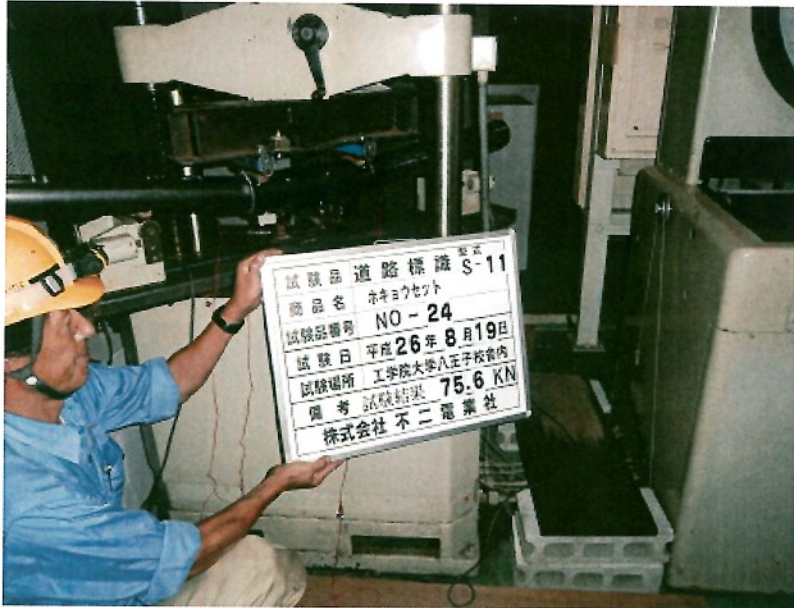 試験品 道路標識 型式 S-11
商品名 ホキョウセット
試験品番号 NO-24
試験日 平成26年8月19日
試験場所 工学院大学八王子校舎内
備考 試験結果 75.6 KN
株式会社 不二電業社